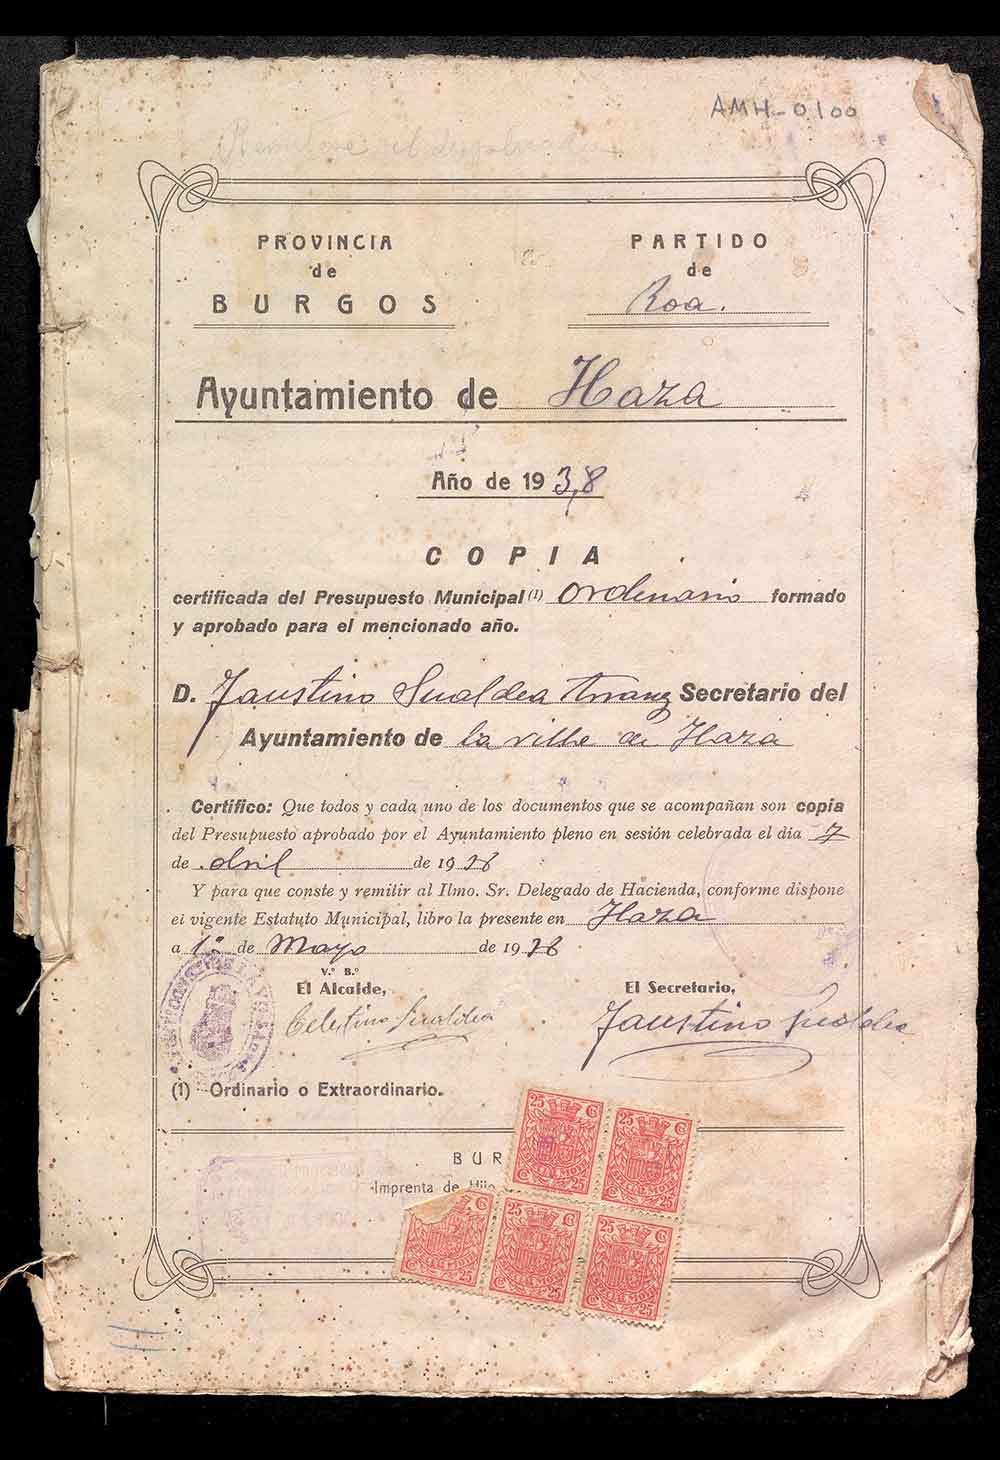 AMH-0100
PROVINCIA
de
BURGOS
PARTIDO
de
Roa.
Ayuntamiento de Haza
Año de 1938
COPIA
certificada del Presupuesto Municipal (1) Ordinario formado
y aprobado para el mencionado año.
D. Faustino Sualdea Arranz Secretario del
Ayuntamiento de la villa de Haza
Certifico: Que todos y cada uno de los documentos que se acompañan son copia
del Presupuesto aprobado por el Ayuntamiento pleno en sesión celebrada el día 7
de Abril de 1938
Y para que conste y remitir al Ilmo. Sr. Delegado de Hacienda, conforme dispone
el vigente Estatuto Municipal, libro la presente en Haza
a 1º de Mayo de 1938
V.º B.º
El Alcalde,
El Secretario,
Celestino Sualdea
Faustino Sualdea
(1) Ordinario o Extraordinario.
25 C
25 C
C 25
C 25
BUR
Imprenta de Hijo
25 C
25 C
C 25
C 25
C 25